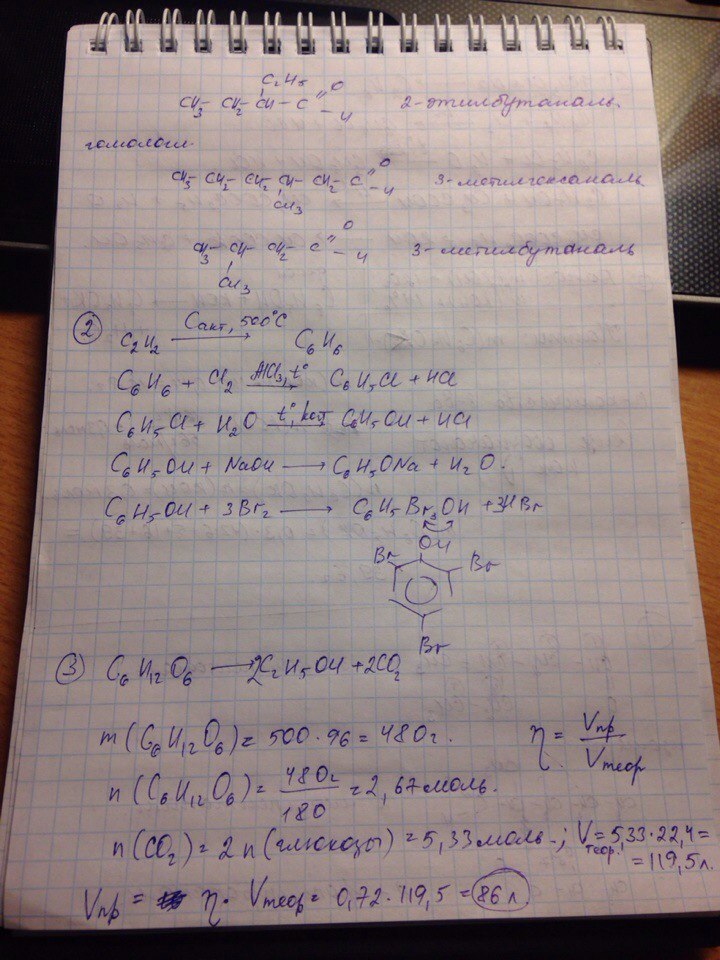 C₂H₅
CH₃ – CH₂ – CH – C =O –H 2-этилбутаналь.
гомологи.
CH₃ – CH₂ – CH₂ – CH – CH₂ – C =O –H 3-метилгексаналь
CH₃
CH₃ – CH – CH₂ – C =O –H 3-метилбутаналь
CH₃
② C₂H₂ —Cакт, 500°C→ C₆H₆
C₆H₆ + Cl₂ —AlCl₃, t°→ C₆H₅Cl + HCl
C₆H₅Cl + H₂O —t°, kat→ C₆H₅OH + HCl
C₆H₅OH + NaOH → C₆H₅ONa + H₂O.
C₆H₅OH + 3Br₂ → C₆H₅Br₃OH + 3HBr
OH
Br Br
Br
③ C₆H₁₂O₆ → 2C₂H₅OH + 2CO₂
m(C₆H₁₂O₆) = 500·96 = 480г. η = Vпр/Vтеор
n(C₆H₁₂O₆) = 480г/180 = 2,67 моль.
n(CO₂) = 2n(глюкозы) = 5,33 моль.; Vтеор. = 5,33·22,4 =
= 119,5л.
Vпр = η· Vтеор = 0,72·119,5 = 86 л.